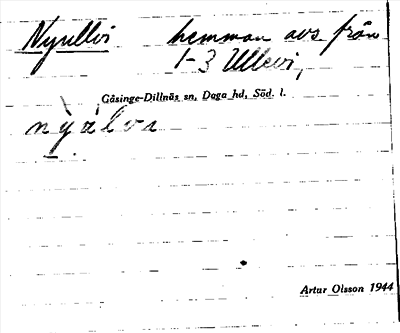 Nyullvi hemman avs från
1-3 Ullevi,
Gåsinge-Dillnäs sn, Daga hd, Söd. l.
Artur Olsson 1944